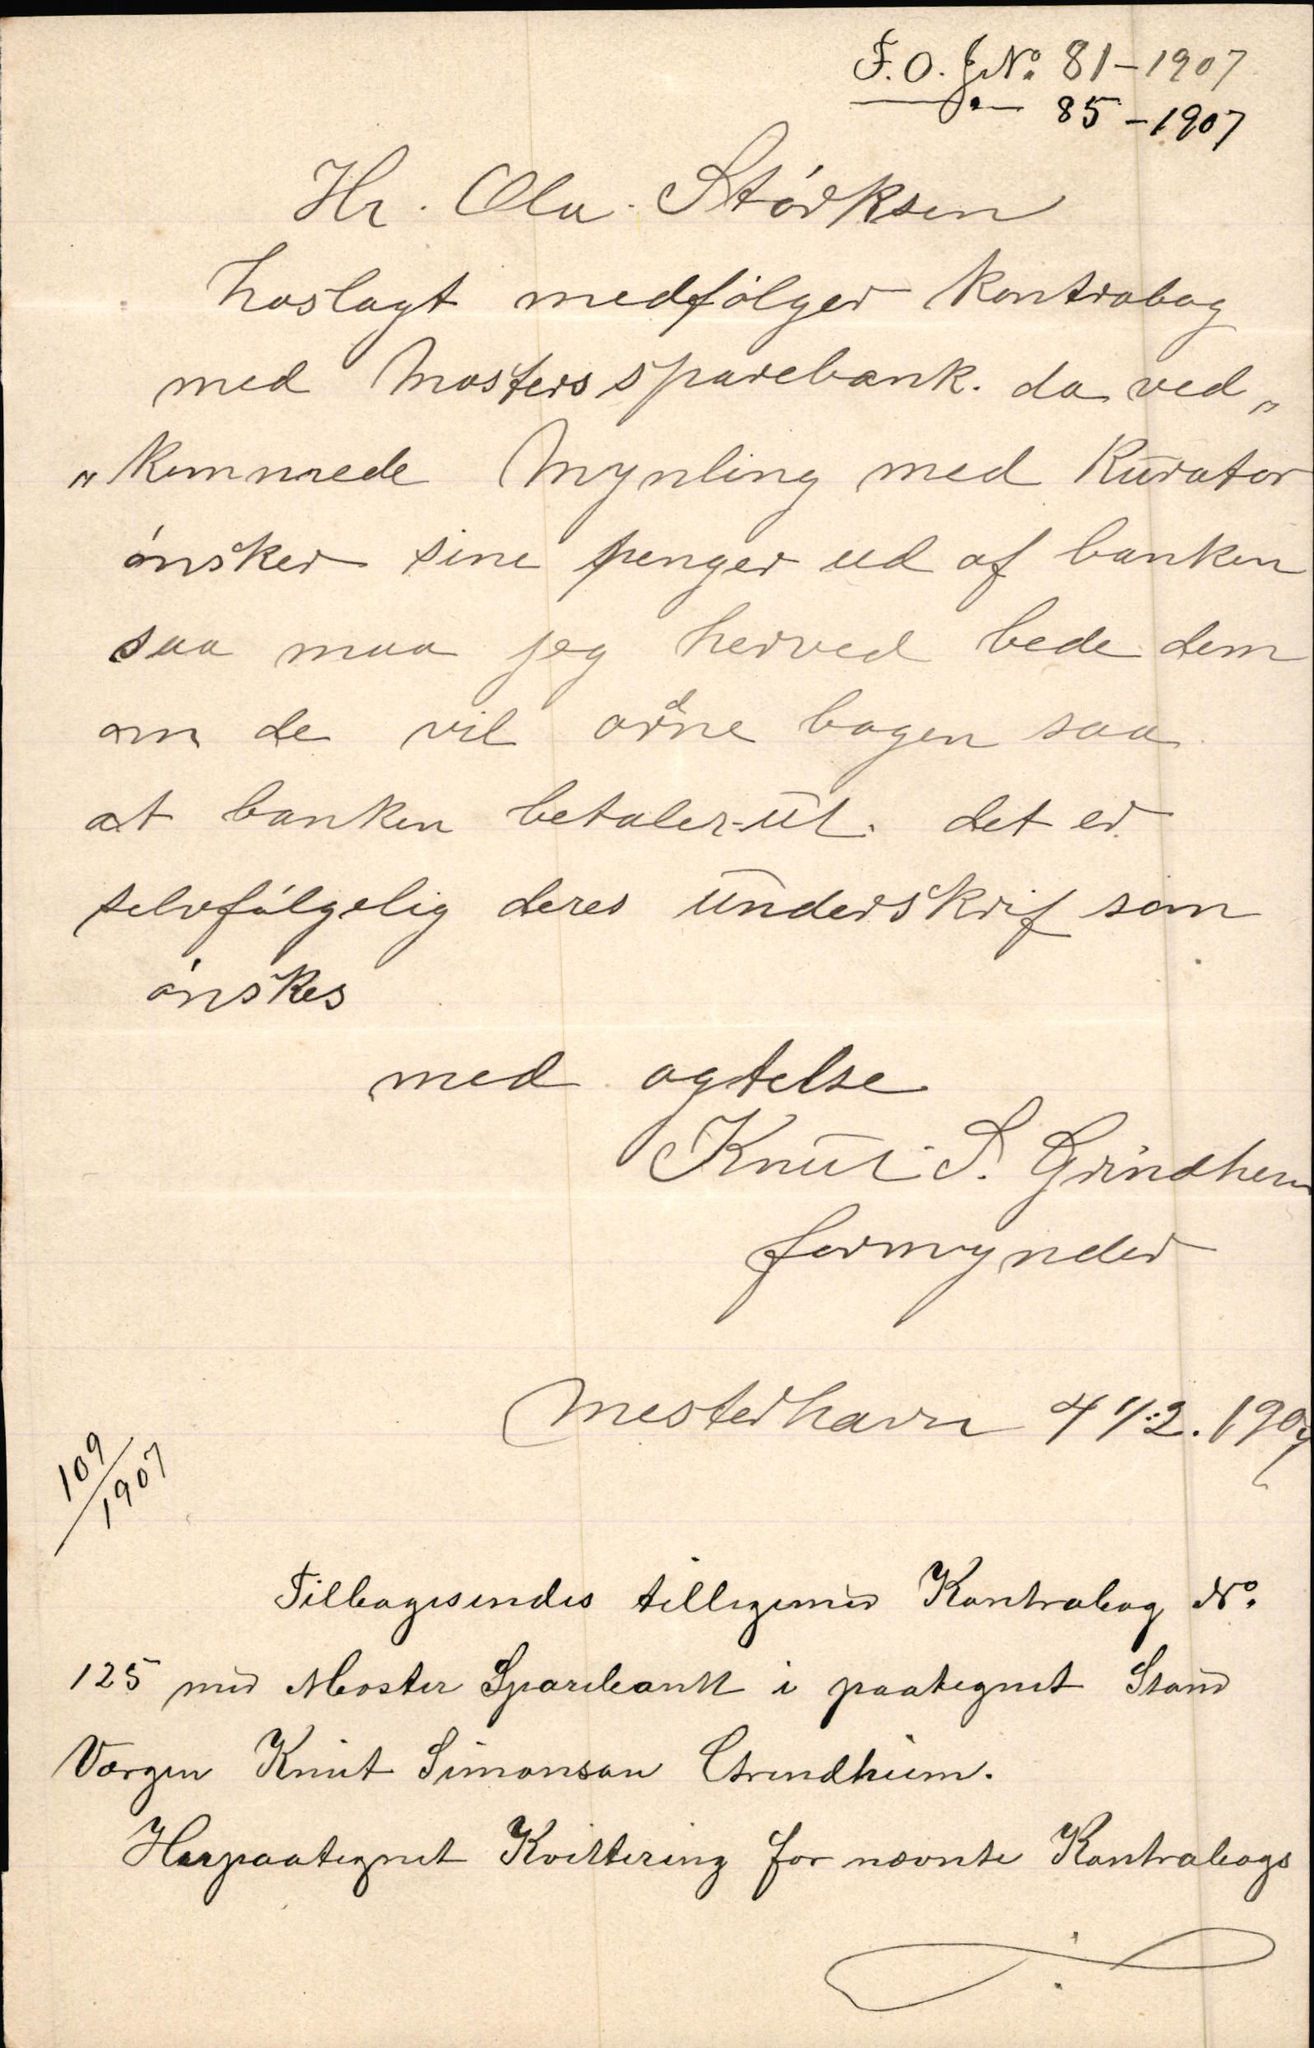 F. O. J. No. 81-1907
—"— 85-1907
Hr. Ola. Størksen
hoslagt medfølger kontrabog
med Mosters sparebank. da ved„
„kommede Mynling med Kurator
ønsker sine penger ud af banken
saa maa jeg herved bede dem
om de vil ordne bogen saa
at banken betaler-ut. det er
selvfølgelig deres underskrif som
ønskes
med agtelse
Knut S. Grindhem
formynder
Mosterhavn 4 1/2. 1907
109/1907
Tilbagesendes tilligemed Kontrabog No.
125 med Moster Sparebank i paategnet Stand
Værgen Knut Simonsen Grindheim.
Herpaategnet Kvittering for nævnte Kontrabogs